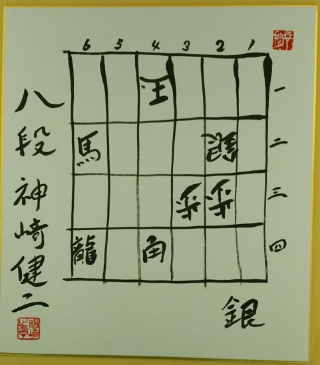 6 5 4 3 2 1
王 一
馬 銀 二
歩 歩 三
龍 角 四
銀
八段 神崎健二